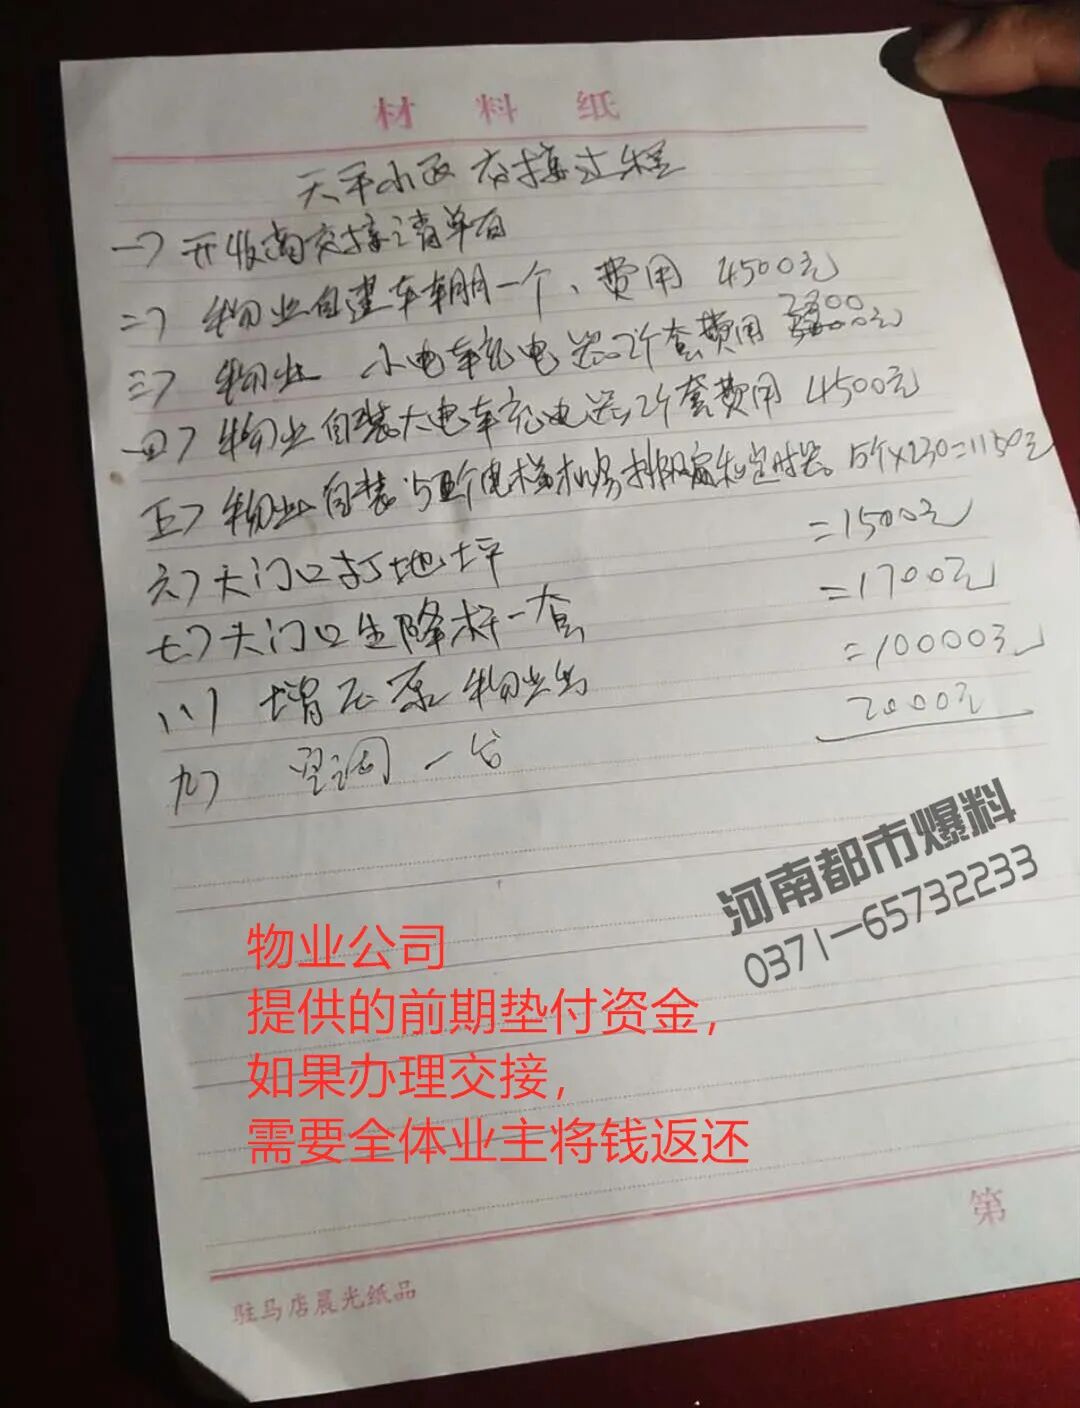 材料纸
天平小区交接过程
一) 开发商交接清单有
二) 物业自建车棚一个、费用 4500元
三) 物业 小电车充电器2个套费用
四) 物业自装大电车充电器2个套费用 4500元
五) 物业自装5个电梯机房排风扇和定时器 5个×230=1150元
六) 大门口打地坪 =1500元
七) 大门口生降杆一套 =1700元
八) 增压泵物业出 =10000元
九) 空调一台 2000元
河南都市爆料
0371-65732233
物业公司
提供的前期垫付资金，
如果办理交接，
需要全体业主将钱返还
第
驻马店晨光纸品